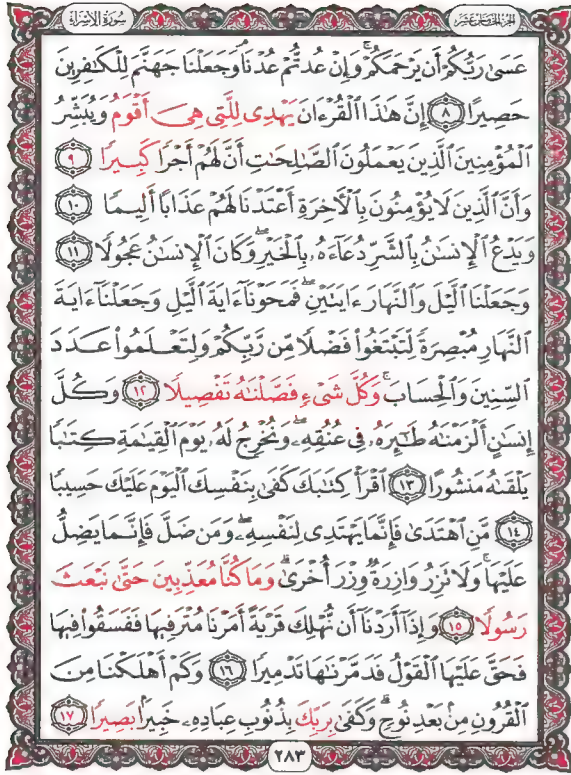 الجزء الخامس عشر
سورة الإسراء
عَسَىٰ رَبُّكُمْ أَن يَرْحَمَكُمْ ۚ وَإِنْ عُدتُّمْ عُدْنَا ۘ وَجَعَلْنَا جَهَنَّمَ لِلْكَٰفِرِينَ
حَصِيرًا ۝٨ إِنَّ هَٰذَا ٱلْقُرْءَانَ يَهْدِى لِلَّتِى هِىَ أَقْوَمُ وَيُبَشِّرُ
ٱلْمُؤْمِنِينَ ٱلَّذِينَ يَعْمَلُونَ ٱلصَّٰلِحَٰتِ أَنَّ لَهُمْ أَجْرًا كَبِيرًا ۝٩
وَأَنَّ ٱلَّذِينَ لَا يُؤْمِنُونَ بِٱلْءَاخِرَةِ أَعْتَدْنَا لَهُمْ عَذَابًا أَلِيمًا ۝١٠
وَيَدْعُ ٱلْإِنسَٰنُ بِٱلشَّرِّ دُعَآءَهُۥ بِٱلْخَيْرِ ۖ وَكَانَ ٱلْإِنسَٰنُ عَجُولًا ۝١١
وَجَعَلْنَا ٱلَّيْلَ وَٱلنَّهَارَ ءَايَتَيْنِ ۖ فَمَحَوْنَآ ءَايَةَ ٱلَّيْلِ وَجَعَلْنَآ ءَايَةَ
ٱلنَّهَارِ مُبْصِرَةً لِّتَبْتَغُوا۟ فَضْلًا مِّن رَّبِّكُمْ وَلِتَعْلَمُوا۟ عَدَدَ
ٱلسِّنِينَ وَٱلْحِسَابَ ۚ وَكُلَّ شَىْءٍ فَصَّلْنَٰهُ تَفْصِيلًا ۝١٢ وَكُلَّ
إِنسَٰنٍ أَلْزَمْنَٰهُ طَٰٓئِرَهُۥ فِى عُنُقِهِۦ ۖ وَنُخْرِجُ لَهُۥ يَوْمَ ٱلْقِيَٰمَةِ كِتَٰبًا
يَلْقَىٰهُ مَنشُورًا ۝١٣ ٱقْرَأْ كِتَٰبَكَ كَفَىٰ بِنَفْسِكَ ٱلْيَوْمَ عَلَيْكَ حَسِيبًا
۝١٤ مَّنِ ٱهْتَدَىٰ فَإِنَّمَا يَهْتَدِى لِنَفْسِهِۦ ۖ وَمَن ضَلَّ فَإِنَّمَا يَضِلُّ
عَلَيْهَا ۚ وَلَا تَزِرُ وَازِرَةٌ وِزْرَ أُخْرَىٰ ۗ وَمَا كُنَّا مُعَذِّبِينَ حَتَّىٰ نَبْعَثَ
رَسُولًا ۝١٥ وَإِذَآ أَرَدْنَآ أَن نُّهْلِكَ قَرْيَةً أَمَرْنَا مُتْرَفِيهَا فَفَسَقُوا۟ فِيهَا
فَحَقَّ عَلَيْهَا ٱلْقَوْلُ فَدَمَّرْنَٰهَا تَدْمِيرًا ۝١٦ وَكَمْ أَهْلَكْنَا مِنَ
ٱلْقُرُونِ مِنۢ بَعْدِ نُوحٍ ۗ وَكَفَىٰ بِرَبِّكَ بِذُنُوبِ عِبَادِهِۦ خَبِيرًۢا بَصِيرًا ۝١٧
٢٨٣